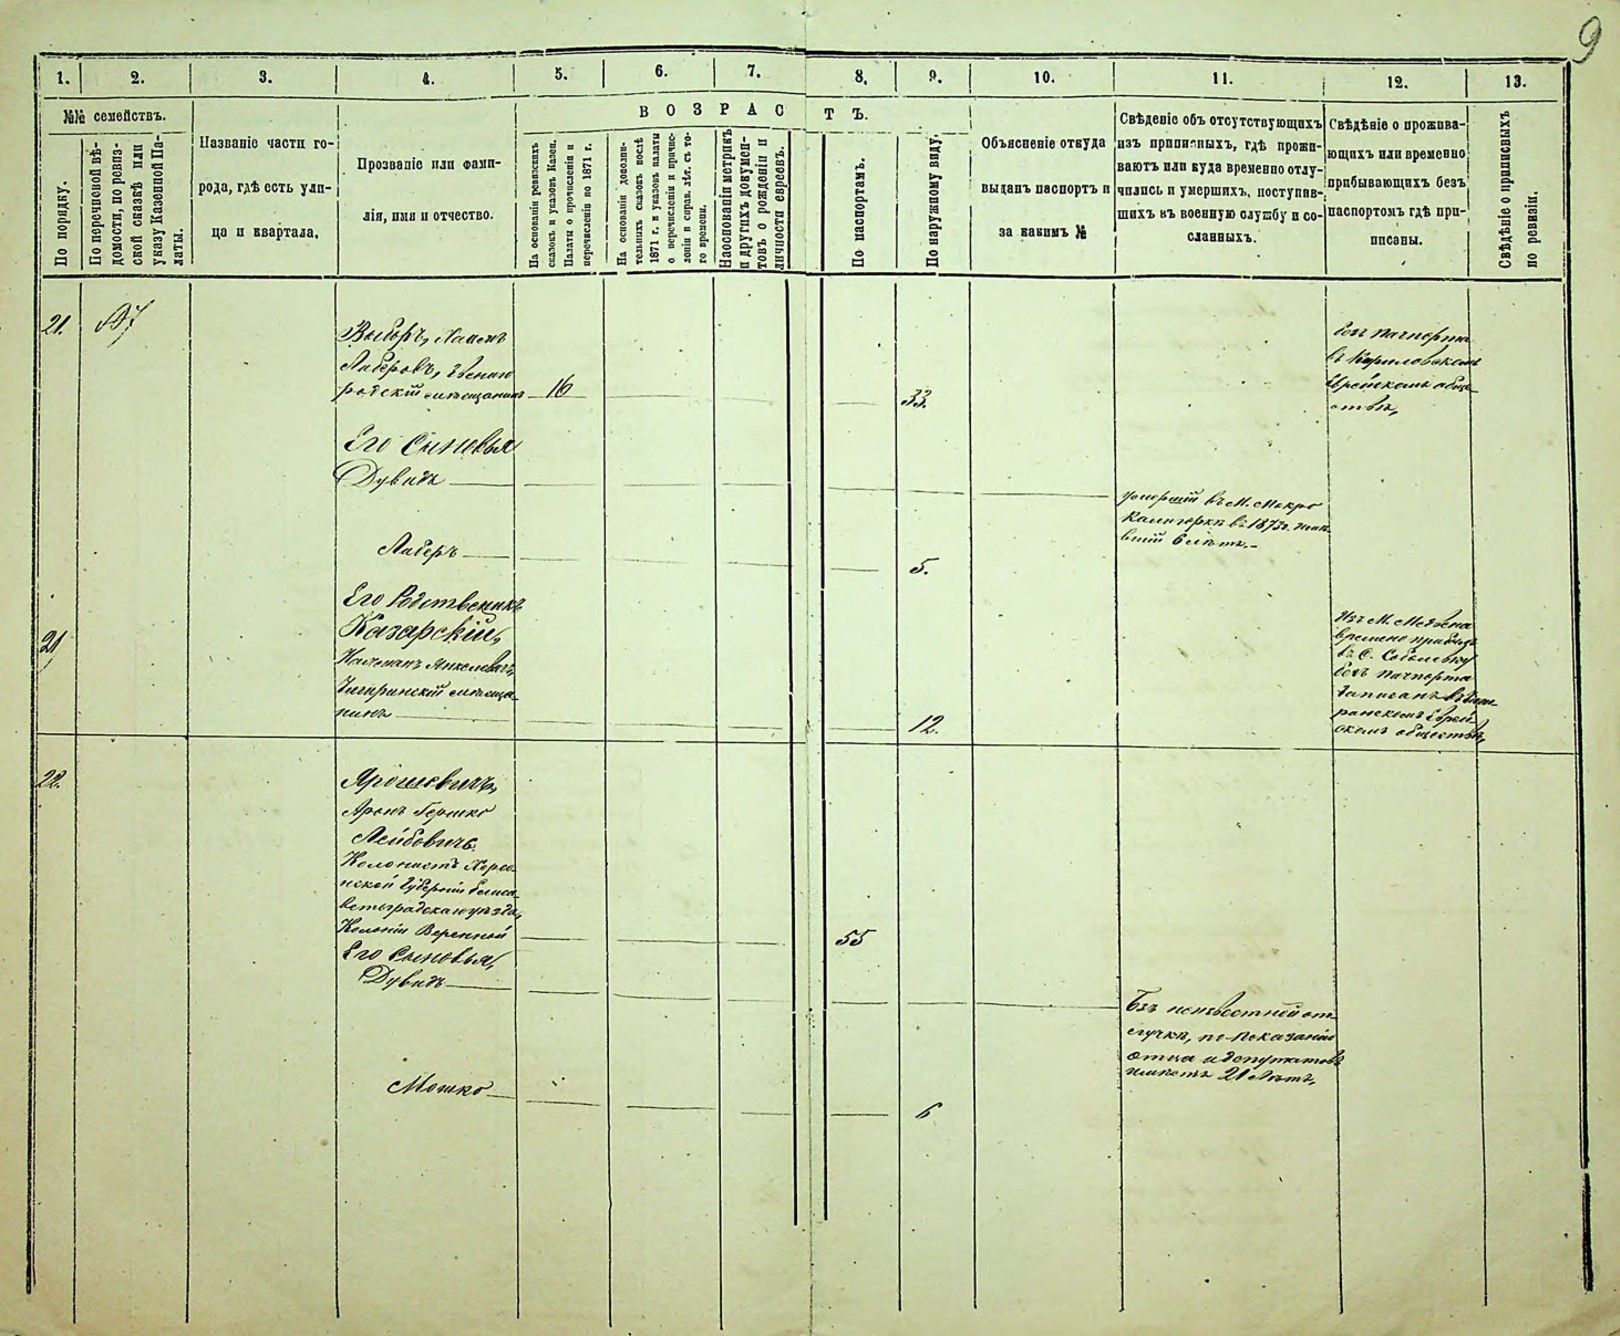 9
1. 2. 3. 4. 5. 6. 7. 8. 9. 10. 11. 12. 13.
№№ семействъ.
По порядку.
По перечневой вѣ-
домости, по ревиз-
ской сказкѣ или
указу Казенной Па-
латы.
Названіе части го-
рода, гдѣ есть ули-
ца и квартала.
Прозваніе или фами-
лія, имя и отчество.
ВОЗРАСТЪ.
На основаніи ревизскихъ
сказокъ и указовъ Казен.
Палаты о причисленіи и
перечисленіи по 1871 г.
На основаніи дополни-
тельныхъ сказокъ послѣ
1871 г. и указовъ палаты
о перечисленіи и причис-
леніи и справ. лѣт. съ то-
го времени.
Наоснованіи метрикъ
и другихъ докумен-
товъ о рожденіи и
личности евреевъ.
По паспортамъ.
По наружному виду.
Объясненіе откуда
выданъ паспортъ и
за какимъ №
Свѣденіе объ отсутствующихъ
изъ приписныхъ, гдѣ прожи-
ваютъ или куда временно отлу-
чились и умершихъ, поступив-
шихъ въ военную службу и со-
сланныхъ.
Свѣдѣніе о прожива-
ющихъ или временно
прибывающихъ безъ
паспортомъ гдѣ при-
писаны.
Свѣдѣніе о приписныхъ
по ревизіи.
21.
Выборъ, Хаимъ
Либеровъ, Звениго
родскій мѣщанинъ
16
33.
безъ пачпорта
въ Кириловскомъ
Еврейскомъ обще
ствѣ,
Его Сыновья
Дувидъ
умершій въ М. Мокро
Калигоркѣ въ 1873г. имѣ
вшій 6 лѣтъ.
Либеръ
5.
Его Родственикъ
21
Казарскій,
Нахманъ Янкелевичъ,
Чигиринскій мѣща
нинъ
12.
Изъ М. Медвена
времено прибылъ
въ С. Соболевку
безъ пачпорта
записанъ въ Чиги
ринскомъ Еврей
скомъ обществѣ,
22.
Ярошевичъ,
Аронъ Гершко
Лейбовичъ.
Колонистъ Херсо
нской Губерніи Елиса
ветградскаго уѣзда,
Колоніи
55
Его Сыновья,
Дувидъ
Въ неизвестной от
лучкѣ, по показанію
отца и депутатовъ
имѣетъ 21 Лѣтъ,
Мошко
6